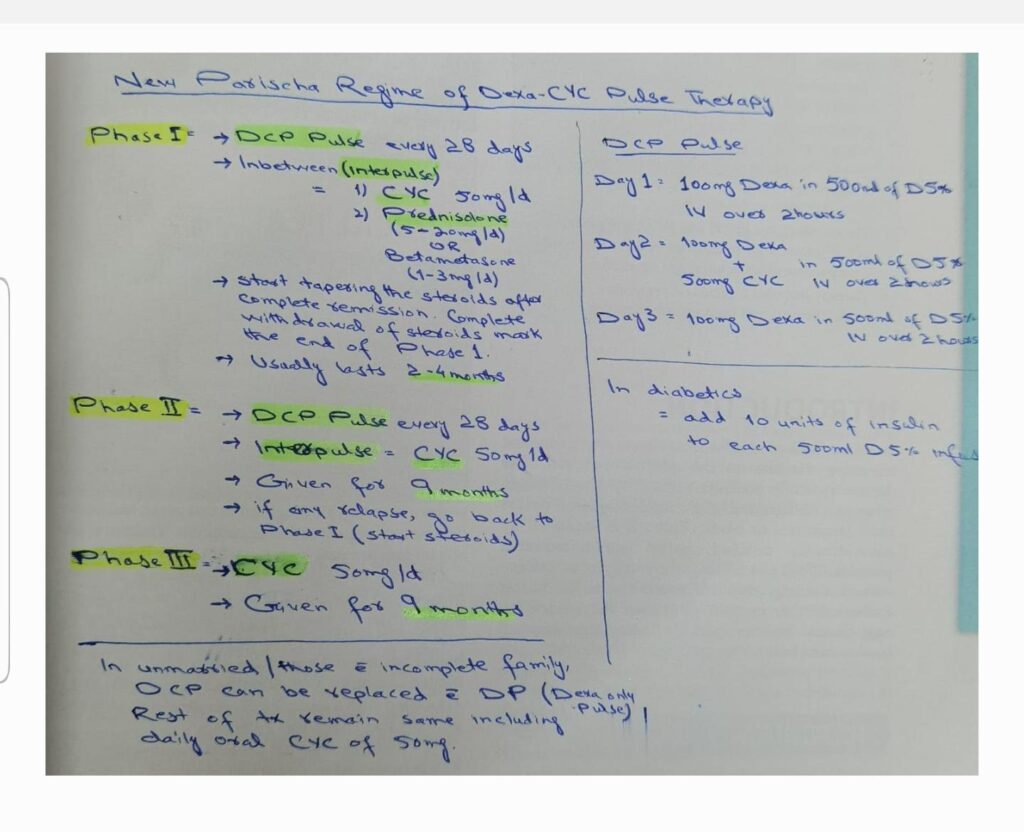 New Parischa Regime of Dexa-CYC Pulse Therapy
Phase I = → DCP Pulse every 28 days
→ Inbetween (interpulse)
= 1) CYC 50mg/d
2) Prednisolone
(5-20mg/d)
OR
Betametasone
(1-3mg/d)
→ start tapering the steroids after
complete remission. Complete
withdrawal of steroids mark
the end of Phase 1.
→ Usually lasts 2-4 months
Phase II = → DCP Pulse every 28 days
→ Interpulse = CYC 50mg/d
→ Given for 9 months
→ if any relapse, go back to
Phase I (start steroids)
Phase III = → CYC 50mg/d
→ Given for 9 months
In unmarried/those c̄ incomplete family,
DCP can be replaced c̄ DP (Dexa only
Pulse)
Rest of tx remain same including
daily oral CYC of 50mg.
DCP Pulse
Day 1 = 100mg Dexa in 500ml of D5%
IV over 2hours
Day2 = 100mg Dexa
+ in 500ml of D5%
500mg CYC IV over 2hours
Day3 = 100mg Dexa in 500ml of D5%
IV over 2hours
In diabetics
= add 10 units of insulin
to each 500ml D5%